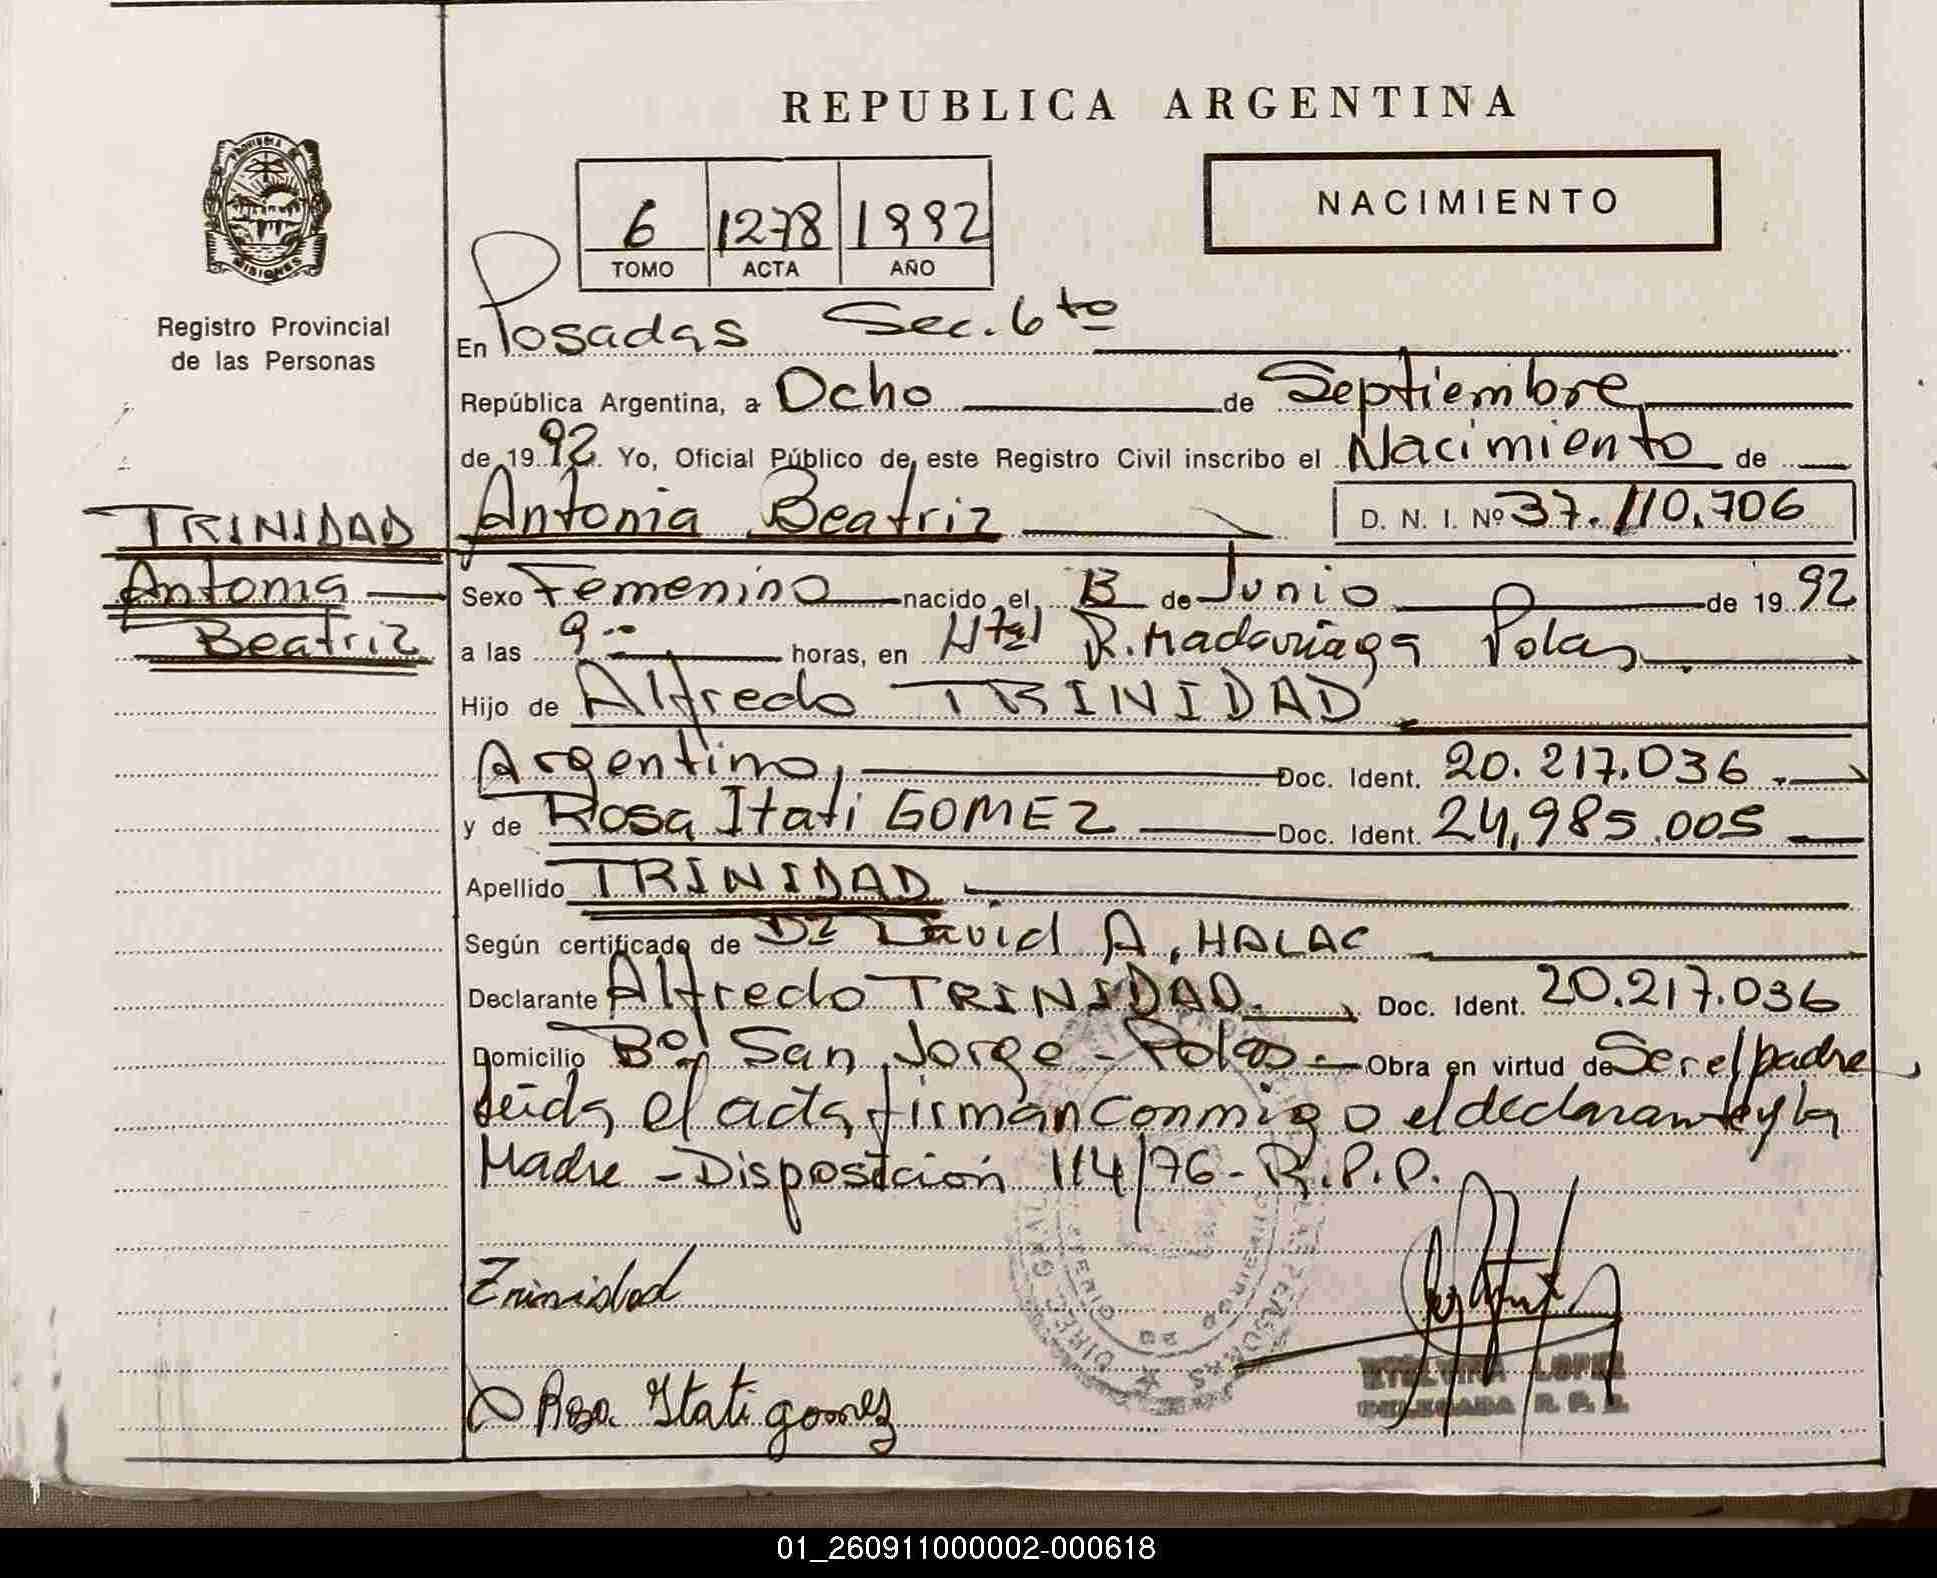 REPUBLICA ARGENTINA
NACIMIENTO
6 1278 1992
TOMO ACTA AÑO
PROVINCIA DE
MISIONES
Registro Provincial
de las Personas
En Posadas Sec. 6to
República Argentina, a Ocho de Septiembre
de 1992. Yo, Oficial Público de este Registro Civil inscribo el Nacimiento de
TRINIDAD
Antonia
Beatriz
Antonia Beatriz D. N. I. Nº 37.110.706
Sexo Femenino nacido el de Junio de 1992
a las 9 horas, en Htal R. Madariaga Pdas
Hijo de Alfredo TRINIDAD
Argentino, Doc. Ident. 20.217.036
y de Rosa Itati GOMEZ Doc. Ident. 24,985.005
Apellido TRINIDAD
Según certificado de Dr David A, HALAC
Declarante Alfredo TRINIDAD. Doc. Ident. 20.217.036
Domicilio Bº San Jorge - Pdas. Obra en virtud de Ser el padre
Leida el acta, firman conmigo el declarante y la
Madre - Disposicion 114/76 - R.P.P.
Trinidad
Rosa Itati gomez
LOPEZ
DELEGADA R. P. P.
01_260911000002-000618